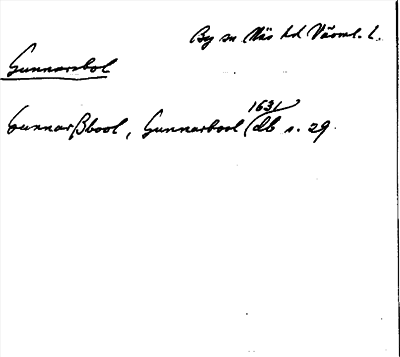 By sn Näs hd Värml. l.
Gunnarsbol
Gunnarßbool, Gunnarbool (db s. 29.
1631